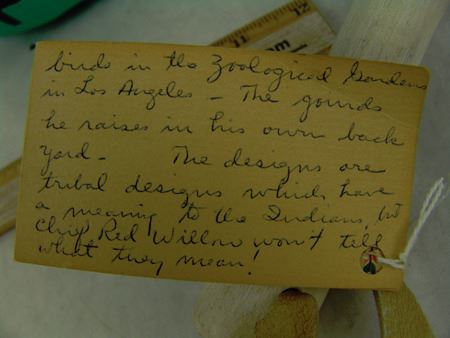 birds in the Zoological Gardens
in Los Angeles – The gourds
he raises in his own back
yard – The designs are
tribal designs which have
a meaning to the Indians, but
Chief Red Willow won't tell
what they mean!
12